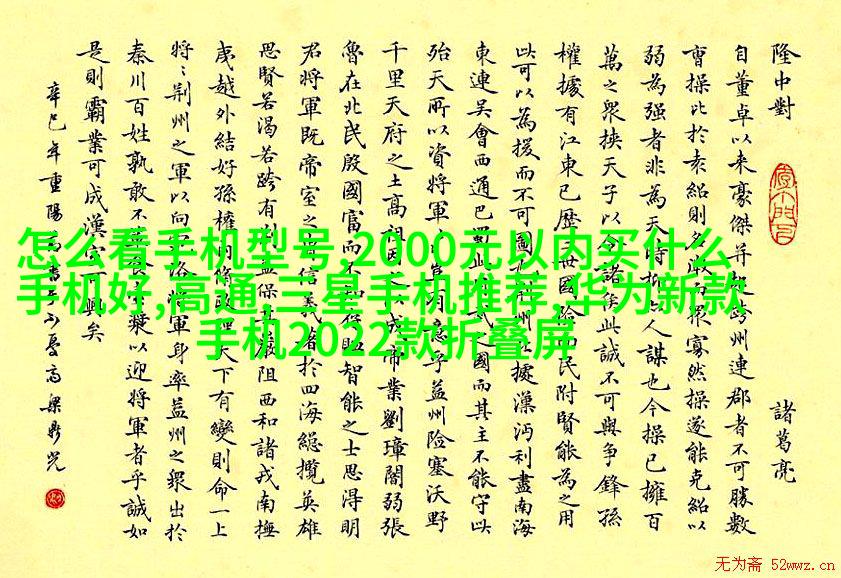 隆中對
諸葛亮
自董卓以来豪傑并起跨州連郡者不可勝數
曹操比於袁紹則名微而眾寡然操遂能克紹以
弱為强者非為天時抑人謀也今操已擁百
萬之眾挟天子以令諸侯此誠不可與争鋒孫
權據有江東已歷三世國險民附賢能為之用
此可以為援而不可圖荆州據漢沔利盡南海
東連吴會西通巴蜀武之國而其主不能守此
殆天所以資將軍豈有意乎益州险塞沃野
千里天府之土高祖因之以成帝業劉璋闇弱張
魯在北民殷國富而不知存恤智能之士思得明
君將軍既帝室之胄信義著於四海總攬英雄
思賢若渴若跨有荆益保其巖阻西和諸戎南撫
夷越外結好孫權内修政理天下有變則命一上
將〻荆州之軍以向宛洛將軍身率益州之眾出於
秦川百姓孰敢不簞食壺漿以迎將軍者乎誠如
是則霸業可成漢室可興矣
辛巳年重陽
怎么看手机型号,2000元以内买什么
手机好,高通,三星手机推荐,华为新款
手机2022款折叠屏
无为斋 52wwz.cn